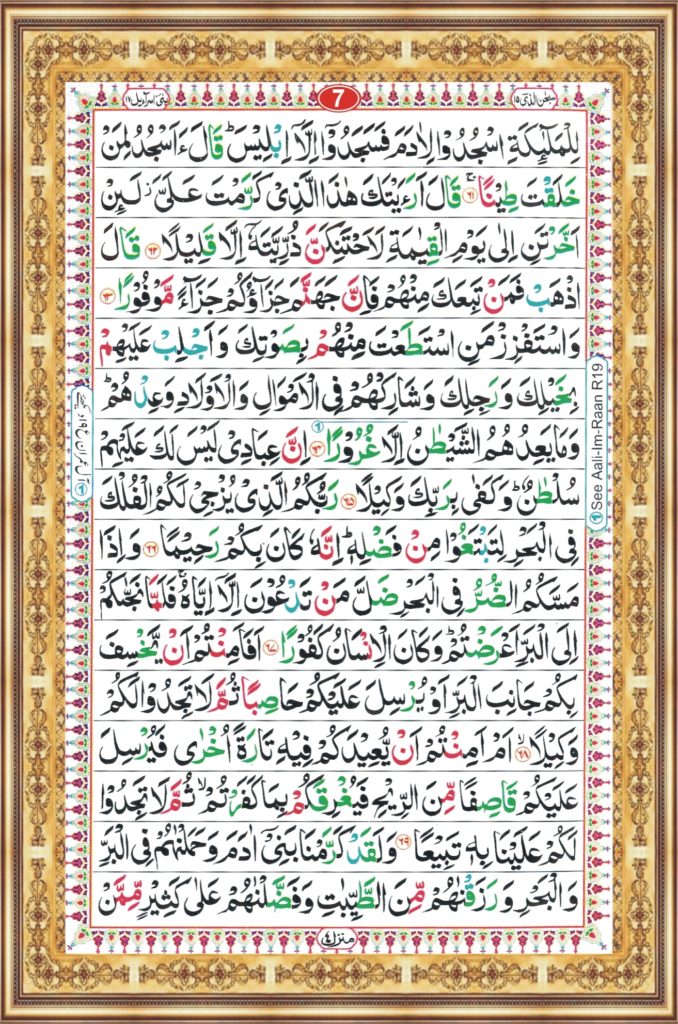 سبحن الذی ۱۵
7
بنی اسرآءیل ۱۷
لِلْمَلٰٓئِكَةِ اسْجُدُوْا لِاٰدَمَ فَسَجَدُوْۤا اِلَّاۤ اِبْلِیْسَ ؕ قَالَ ءَاَسْجُدُ لِمَنْ
خَلَقْتَ طِیْنًا ۚ ﴿۶۱﴾ قَالَ اَرَءَیْتَكَ هٰذَا الَّذِیْ كَرَّمْتَ عَلَیَّ ؗ لَئِنْ
اَخَّرْتَنِ اِلٰى یَوْمِ الْقِیٰمَةِ لَاَحْتَنِكَنَّ ذُرِّیَّتَهٗۤ اِلَّا قَلِیْلًا ﴿۶۲﴾ قَالَ
اذْهَبْ فَمَنْ تَبِعَكَ مِنْهُمْ فَاِنَّ جَهَنَّمَ جَزَآؤُكُمْ جَزَآءً مَّوْفُوْرًا ﴿۶۳﴾
وَاسْتَفْزِزْ مَنِ اسْتَطَعْتَ مِنْهُمْ بِصَوْتِكَ وَاَجْلِبْ عَلَیْهِمْ
بِخَیْلِكَ وَرَجِلِكَ وَشَارِكْهُمْ فِی الْاَمْوَالِ وَالْاَوْلَادِ وَعِدْهُمْ ؕ
وَمَا یَعِدُهُمُ الشَّیْطٰنُ اِلَّا غُرُوْرًا ﴿۶۴﴾ اِنَّ عِبَادِیْ لَیْسَ لَكَ عَلَیْهِمْ
سُلْطٰنٌ ؕ وَكَفٰى بِرَبِّكَ وَكِیْلًا ﴿۶۵﴾ رَبُّكُمُ الَّذِیْ یُزْجِیْ لَكُمُ الْفُلْكَ
فِی الْبَحْرِ لِتَبْتَغُوْا مِنْ فَضْلِهٖ ؕ اِنَّهٗ كَانَ بِكُمْ رَحِیْمًا ﴿۶۶﴾ وَاِذَا
مَسَّكُمُ الضُّرُّ فِی الْبَحْرِ ضَلَّ مَنْ تَدْعُوْنَ اِلَّاۤ اِیَّاهُ ۚ فَلَمَّا نَجّٰىكُمْ
اِلَى الْبَرِّ اَعْرَضْتُمْ ؕ وَكَانَ الْاِنْسَانُ كَفُوْرًا ﴿۶۷﴾ اَفَاَمِنْتُمْ اَنْ یَّخْسِفَ
بِكُمْ جَانِبَ الْبَرِّ اَوْ یُرْسِلَ عَلَیْكُمْ حَاصِبًا ثُمَّ لَا تَجِدُوْا لَكُمْ
وَكِیْلًا ۙ ﴿۶۸﴾ اَمْ اَمِنْتُمْ اَنْ یُّعِیْدَكُمْ فِیْهِ تَارَةً اُخْرٰى فَیُرْسِلَ
عَلَیْكُمْ قَاصِفًا مِّنَ الرِّیْحِ فَیُغْرِقَكُمْ بِمَا كَفَرْتُمْ ۙ ثُمَّ لَا تَجِدُوْا
لَكُمْ عَلَیْنَا بِهٖ تَبِیْعًا ﴿۶۹﴾ وَلَقَدْ كَرَّمْنَا بَنِیْۤ اٰدَمَ وَحَمَلْنٰهُمْ فِی الْبَرِّ
وَالْبَحْرِ وَرَزَقْنٰهُمْ مِّنَ الطَّیِّبٰتِ وَفَضَّلْنٰهُمْ عَلٰى كَثِیْرٍ مِّمَّنْ
See Aali-Im-Raan R19
منزل ۴